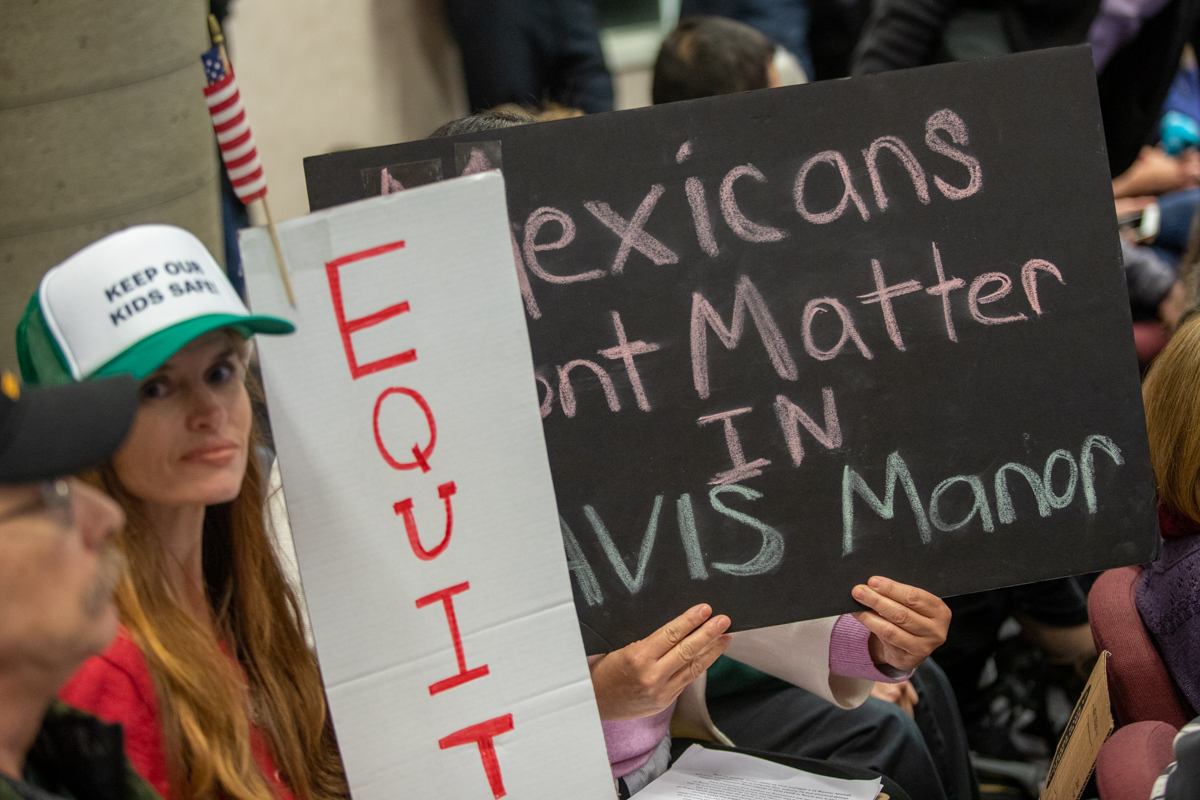 KEEP OUR
KIDS SAFE!
E
Q
U
I
T
Mexicans
ont Matter
IN
AVIS Manor